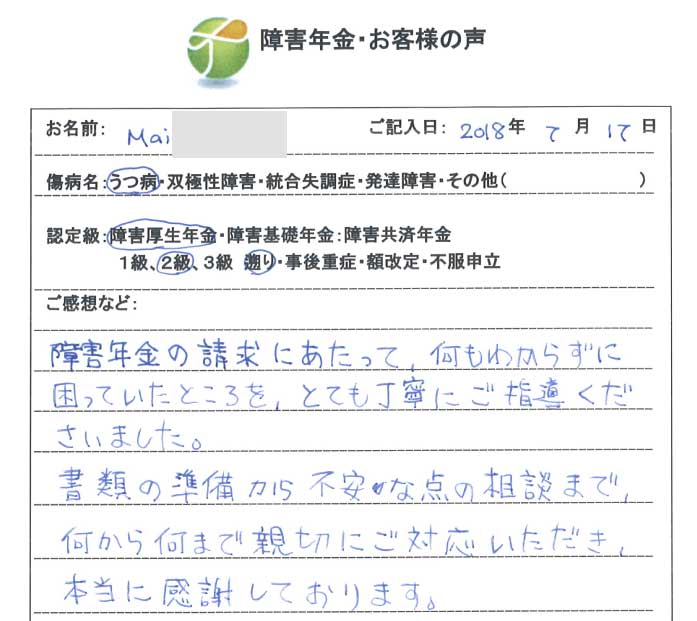 障害年金・お客様の声
お名前: Mai ご記入日: 2018年 7月 17日
傷病名:うつ病・双極性障害・統合失調症・発達障害・その他( )
認定級:障害厚生年金・障害基礎年金:障害共済年金
1級、2級、3級 遡り・事後重症・額改定・不服申立
ご感想など:
障害年金の請求にあたって、何もわからずに
困っていたところを、とても丁寧にご指導くだ
さいました。
書類の準備から不安な点の相談まで、
何から何まで親切にご対応いただき、
本当に感謝しております。